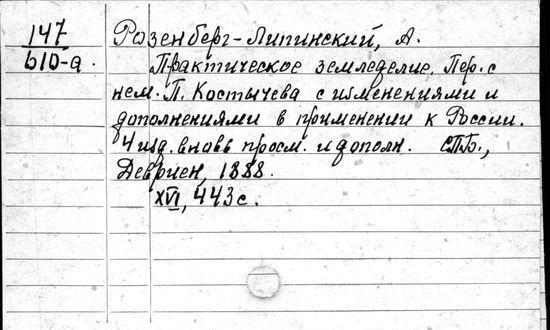 147
610-а.
Розенберг-Липинский, А.
Практическое земледелие. Пер. с
нем. П. Костычева с изменениями и
дополнениями в применении к России.
4 изд. вновь просм. и дополн. СПБ.,
Девриен, 1888.
XVI, 443 с.